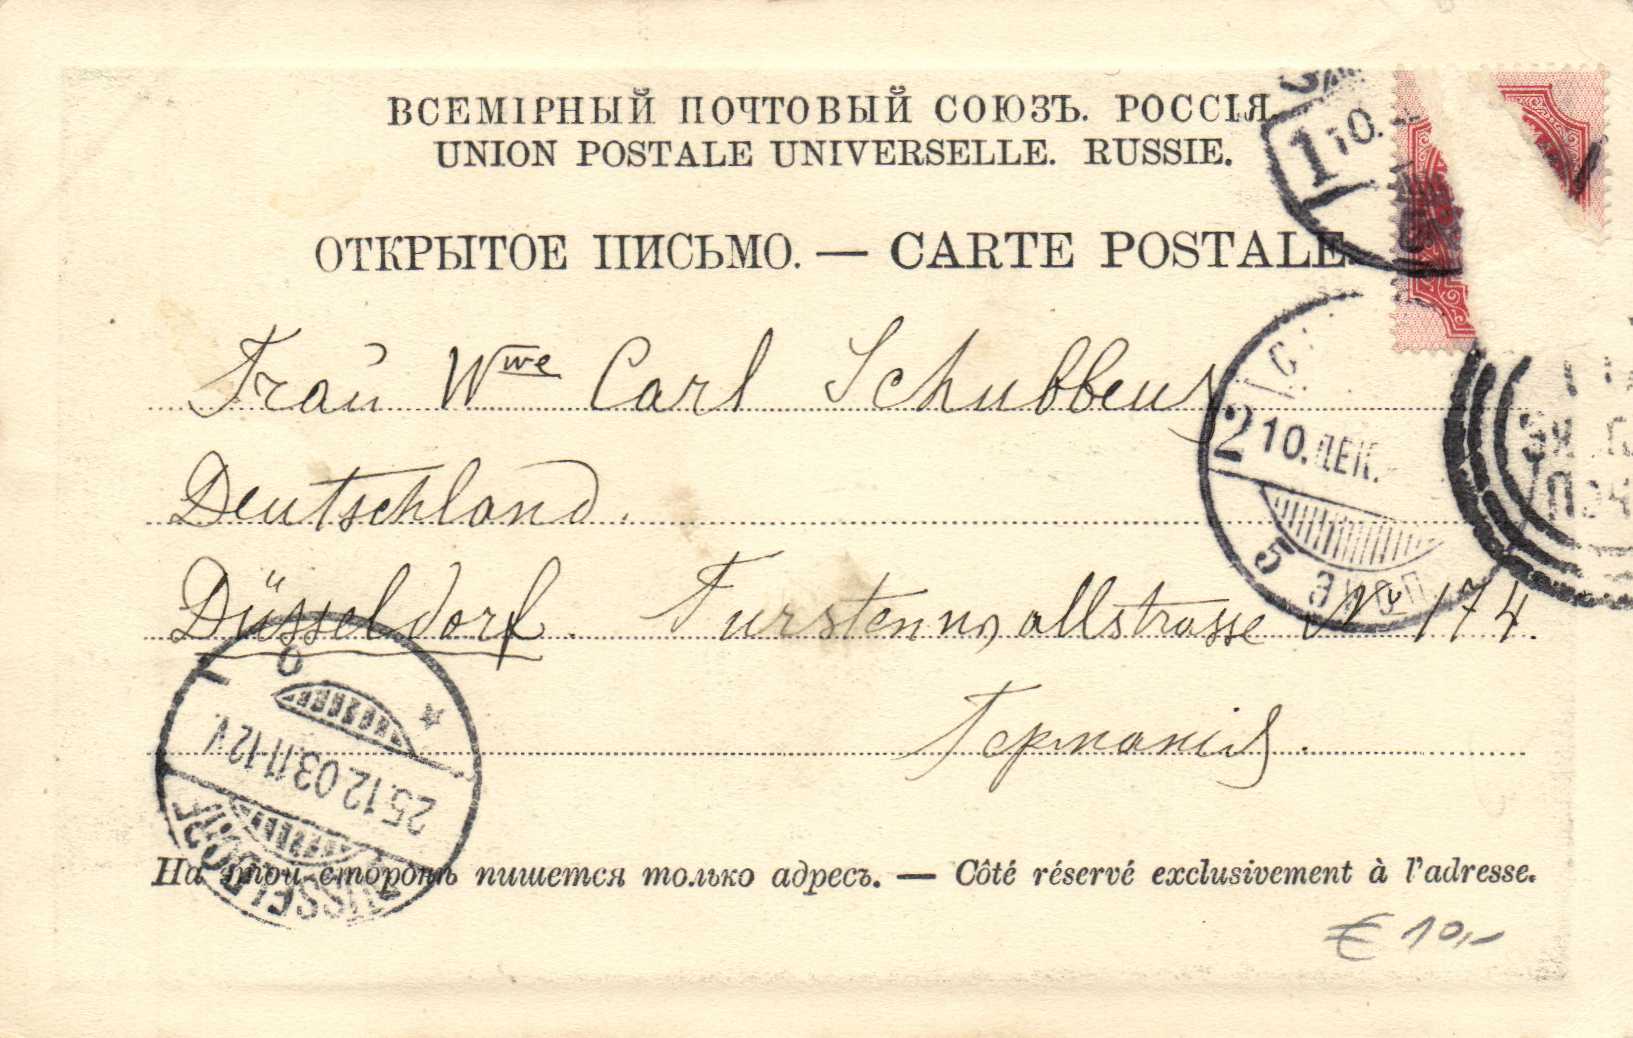 ВСЕМІРНЫЙ ПОЧТОВЫЙ СОЮЗЪ. РОССІЯ.
UNION POSTALE UNIVERSELLE. RUSSIE.
1 10.
ОТКРЫТОЕ ПИСЬМО. — CARTE POSTALE.
Frau Wwe Carl Schubbeus
2 10. ДЕК.
Deutschland.
5
Düsseldorf. Furstenwallstrasse № 174.
Германія.
25.12.03.11-12V.
DÜSSELDORF
На этой сторонѣ пишется только адресъ. — Côté réservé exclusivement à l'adresse.
€ 10,-